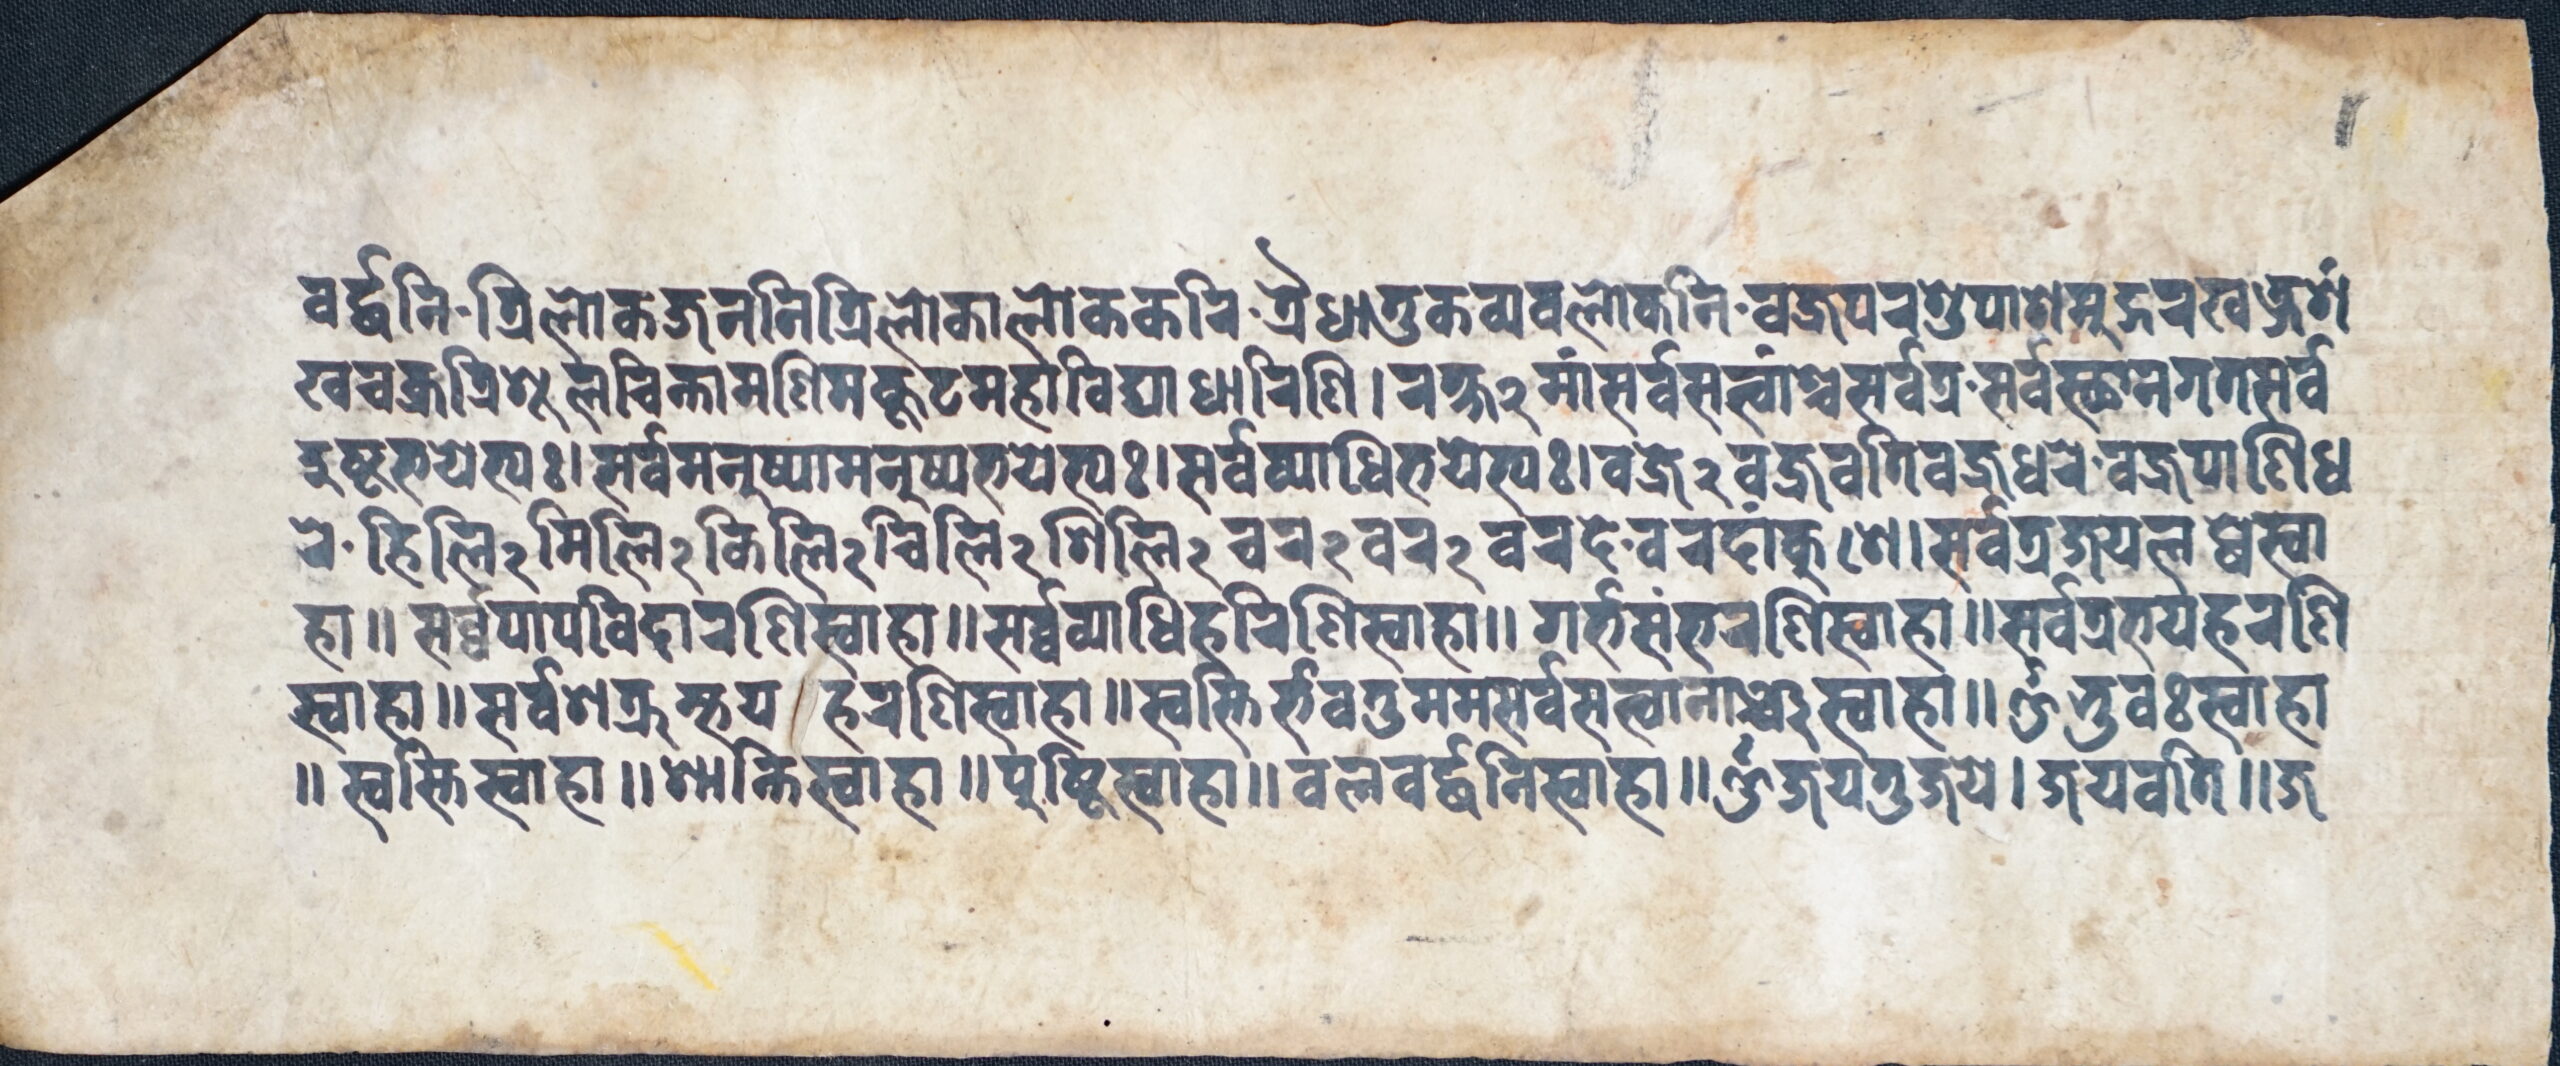 वर्द्धनि·त्रिलोकजननित्रिलोकालोककरि·त्रैधातुकव्यवलोकनि·वज्रपरशुपाशमुद्गरखड्गशं
खचक्रत्रिशूलचिन्तामणिमकूटमहाविद्याधारिणि।रक्ष२मांसर्वसत्त्वांश्चसर्वत्र·सर्वस्थानगतसर्व
दुष्टभयेभ्यः।सर्वमनुष्यामनुष्यभयेभ्यः।सर्वव्याधिभयेभ्यः।वज्रे२वज्रवतिवज्रधरे·वज्रपाणिध
रे·हिलि२मिलि२किलि२चिलि२शिलि२चर२वर२वरदे·वरदांकुशे।सर्वत्रजयलब्धेस्वा
हा॥सर्व्वपापविदारणिस्वाहा॥सर्व्वव्याधिहरिणिस्वाहा॥गर्भसंभरणिस्वाहा॥सर्वत्रभयहरणि
स्वाहा॥सर्वशत्रूम्भय हरणिस्वाहा॥स्वस्तिर्भवतुममसर्वसत्त्वानाञ्च२स्वाहा॥ॐभुवःस्वाहा
॥स्वस्तिस्वाहा॥शान्तिस्वाहा॥पुष्टिस्वाहा॥वलवर्द्धनिस्वाहा॥ॐजयतुजये।जयवति॥ज